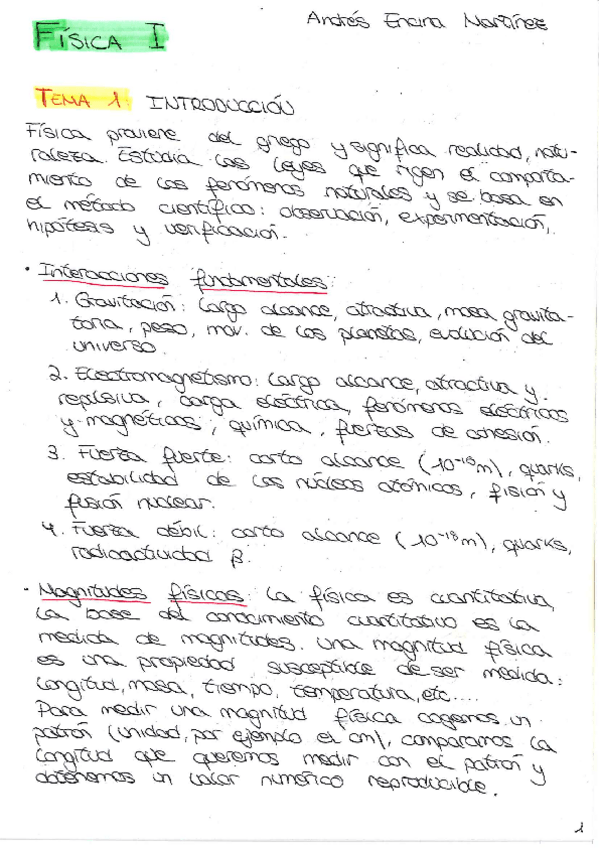 Andrés Encina Martínez
FÍSICA I
TEMA 1: INTRODUCCIÓN
Física proviene del griego y significa realidad, natu-
raleza. Estudia las leyes que rigen el comporta-
miento de los fenómenos naturales y se basa en
el método científico: observación, experimentación,
hipótesis y verificación.
· Interacciones fundamentales:
1. Gravitación: largo alcance, atractiva, masa gravita-
toria, peso, mov. de los planetas, evolución del
universo.
2. Electromagnetismo: largo alcance, atractiva y
repulsiva, carga eléctrica, fenómenos eléctricos
y magnéticos, química, fuerzas de cohesión.
3. Fuerza fuerte: corto alcance (10⁻¹⁵m), quarks,
estabilidad de los núcleos atómicos, fisión y
fusión nuclear.
4. Fuerza débil: corto alcance (10⁻¹⁸m), quarks,
radioactividad β.
· Magnitudes físicas: la física es cuantitativa,
la base del conocimiento cuantitativo es la
medida de magnitudes. Una magnitud física
es una propiedad susceptible de ser medida:
longitud, masa, tiempo, temperatura, etc....
Para medir una magnitud física cogemos un
patrón (unidad, por ejemplo el cm), comparamos la
longitud que queremos medir con el patrón y
obtenemos un valor numérico reproducible.
1